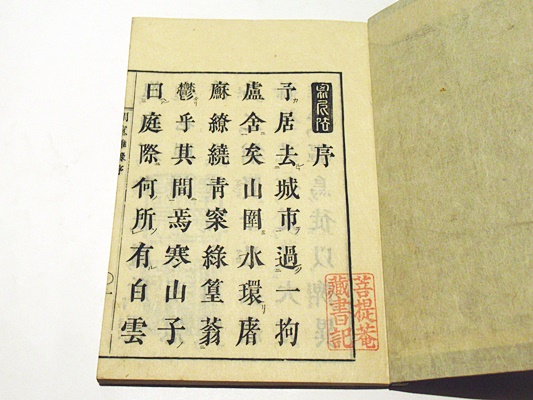 序
予居去城市過一拘
盧舍矣山圍水環廜
㢝繚繞青案綠篁蓊
鬱乎其間焉寒山子
曰庭際何所有白雲
菩提菴
藏書記